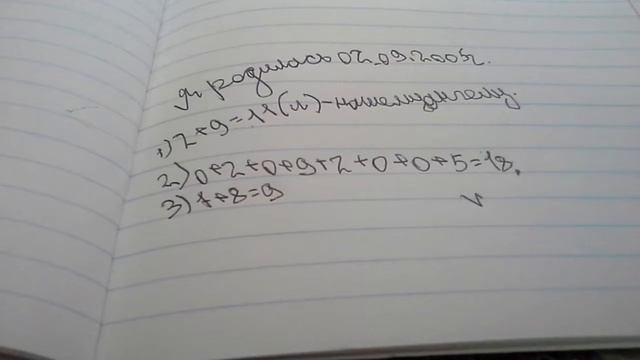 Я родилась 02.09.2005г.
1) 2+9=11(л)-
2) 0+2+0+9+2+0+0+5=18.
3) 1+8=9